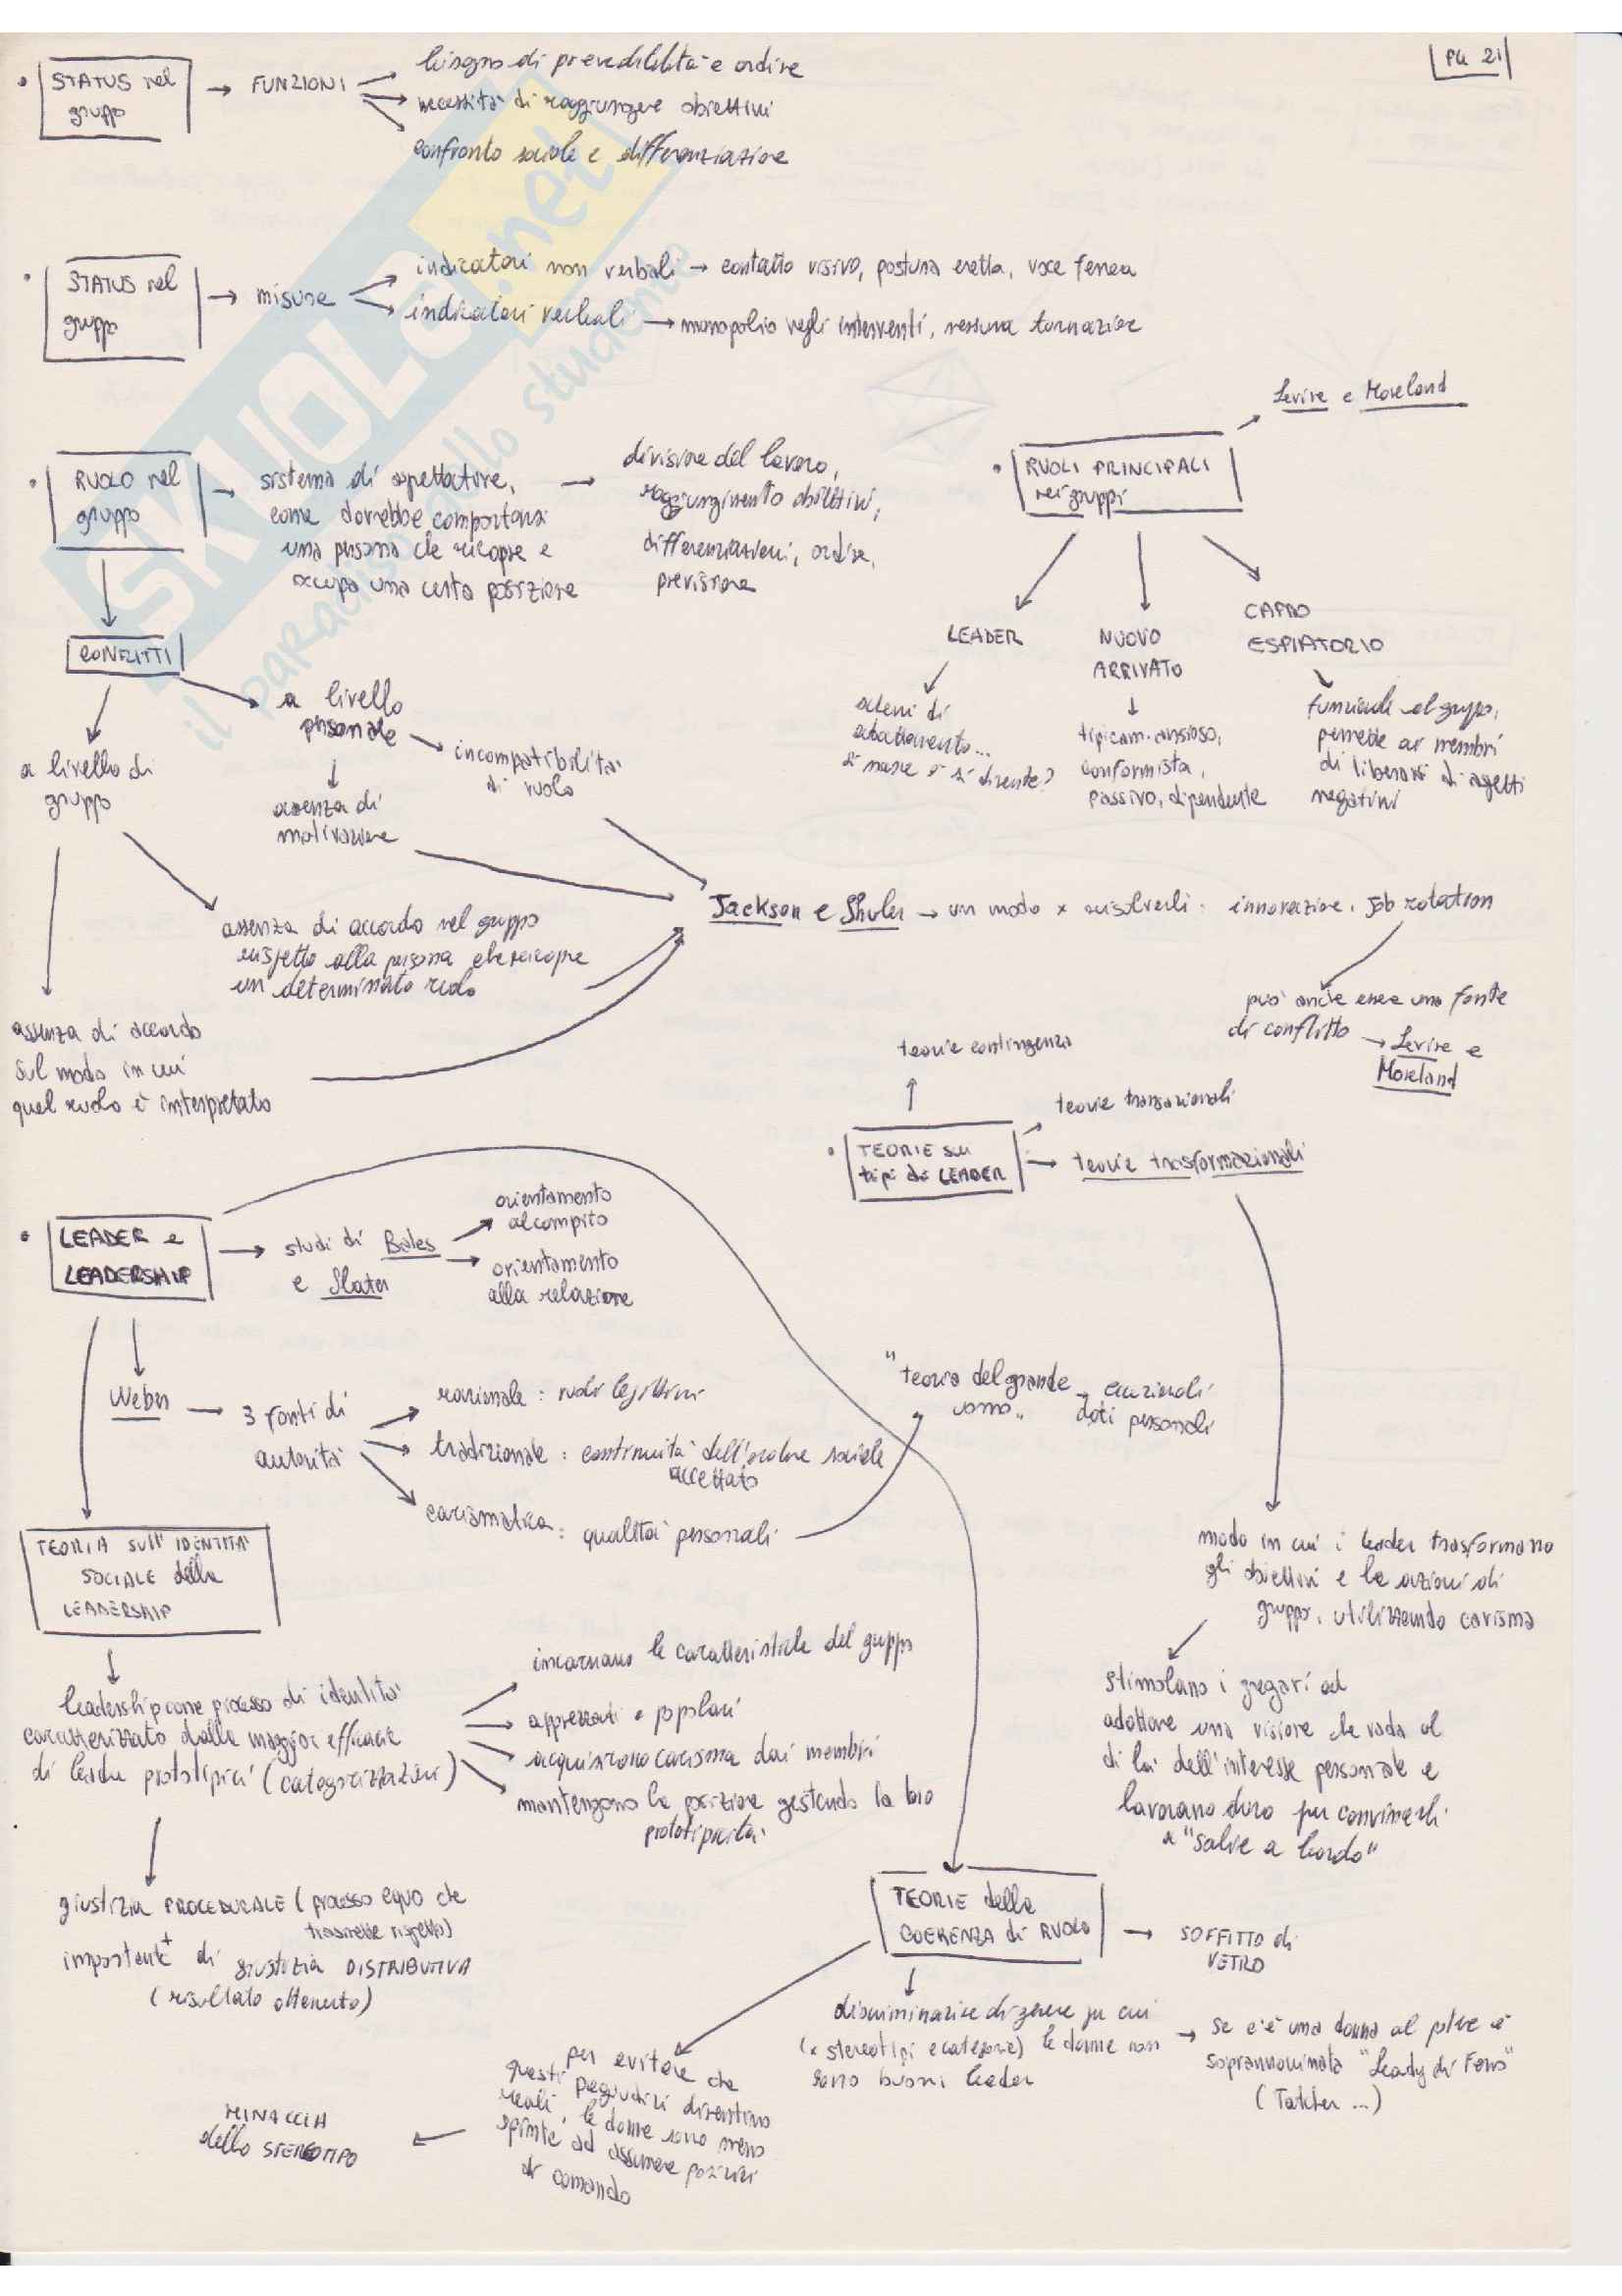 PG 21
STATUS nel
gruppo
FUNZIONI
bisogno di prevedibilità e ordine
necessità di raggiungere obiettivi
confronto sociale e differenziazione
STATUS nel
gruppo
misure
indicatori non verbali → contatto visivo, postura eretta, voce ferma
indicatori verbali → monopolio negli interventi, nessuna turnazione
SKUOLA.net
il paradiso dello studente
RUOLO nel
gruppo
sistema di aspettative,
come dovrebbe comportarsi
una persona che ricopre e
occupa una certa posizione
divisione del lavoro,
raggiungimento obiettivi,
differenziazioni, ordine,
previsione
Levine e Moreland
RUOLI PRINCIPALI
nei gruppi
LEADER
NUOVO
ARRIVATO
CAPRO
ESPIATORIO
si nasce o si diventa?
tipicam. ansioso,
conformista,
passivo, dipendente
funzionale al gruppo,
permette ai membri
di liberarsi di aspetti
negativi
CONFLITTI
a livello di
gruppo
a livello
personale
incompatibilità
di ruolo
assenza di
motivazione
assenza di accordo nel gruppo
rispetto alla persona che ricopre
un determinato ruolo
assenza di accordo
sul modo in cui
quel ruolo è interpretato
Jackson e Shuler → un modo x risolverli: innovazione, job rotation
può anche essere una fonte
di conflitto → Levine e
Moreland
TEORIE sui
tipi di LEADER
teorie contingenza
teorie transazionali
teorie trasformazionali
LEADER e
LEADERSHIP
studi di Bales
e Slater
orientamento
al compito
orientamento
alla relazione
Weber
3 fonti di
autorità
razionale: ruoli legittimi
tradizionale: continuità dell'ordine sociale
accettato
carismatica: qualità personali
"teoria del grande
uomo"
→ eccezionali
doti personali
modo in cui i leader trasformano
gli obiettivi e le azioni di
gruppo, utilizzando carisma
stimolano i gregari ad
adottare una visione che vada al
di là dell'interesse personale e
lavorano duro per convincerli
a "salire a bordo"
TEORIA sull'IDENTITÀ
SOCIALE della
LEADERSHIP
leadership come processo di identità
caratterizzato dalla maggior efficacia
di leader prototipici (categorizzazioni)
incarnano le caratteristiche del gruppo
apprezzati e popolari
acquisiscono carisma dai membri
mantengono la posizione gestendo la loro
prototipicità
giustizia PROCEDURALE (processo equo che
trasmette rispetto)
+
importante di giustizia DISTRIBUTIVA
(risultato ottenuto)
TEORIE della
COERENZA di RUOLO
SOFFITTO di
VETRO
discriminazione di genere per cui
(x stereotipi e categorie) le donne non
sono buoni leader
→ se c'è una donna al potere è
soprannominata "Leady di Ferro"
(Tatcher ...)
per evitare che
questi pregiudizi diventino
reali, le donne sono meno
spinte ad assumere posizioni
di comando
MINACCIA
dello STEREOTIPO